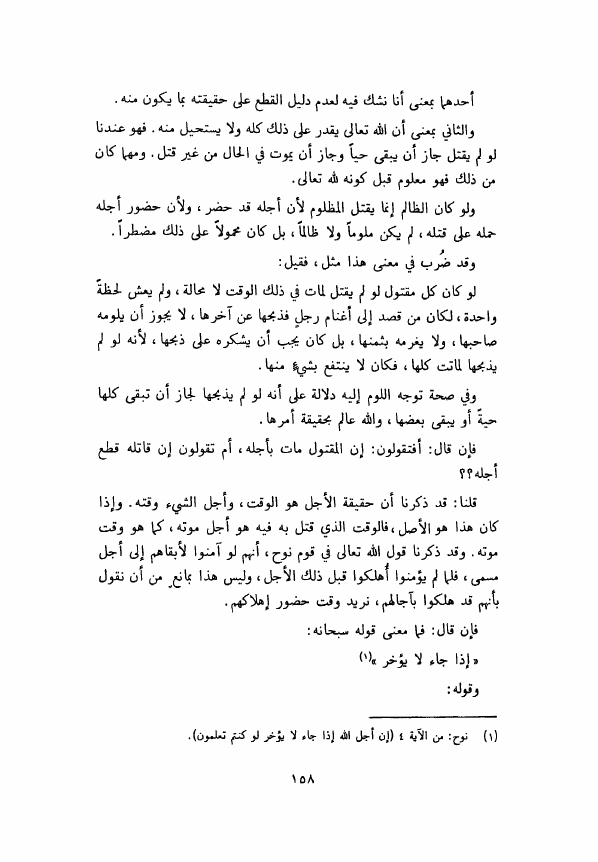 أحدهما بمعنى أنا نشك فيه لعدم دليل القطع على حقيقته بما يكون منه.
والثاني بمعنى أن الله تعالى يقدر على ذلك كله ولا يستحيل منه. فهو عندنا
لو لم يقتل جاز أن يبقى حياً وجاز أن يموت في الحال من غير قتل. ومهما كان
من ذلك فهو معلوم قبل كونه لله تعالى.
ولو كان الظالم إنما يقتل المظلوم لأن أجله قد حضر، ولأن حضور أجله
حمله على قتله، لم يكن ملوماً ولا ظالماً، بل كان محمولاً على ذلك مضطراً.
وقد ضُرب في معنى هذا مثل، فقيل:
لو كان كل مقتول لو لم يقتل لمات في ذلك الوقت لا محالة، ولم يعش لحظةً
واحدة، لكان من قصد إلى أغنام رجلٍ فذبحها عن آخرها، لا يجوز أن يلومه
صاحبها، ولا يغرمه بثمنها، بل كان يجب أن يشكره على ذبحها، لأنه لو لم
يذبحها لماتت كلها، فكان لا ينتفع بشيءٍ منها.
وفي صحة توجه اللوم إليه دلالة على أنه لو لم يذبحها لجاز أن تبقى كلها
حيةً أو يبقى بعضها، والله عالم بحقيقة أمرها.
فإن قال: أفتقولون: إن المقتول مات بأجله، أم تقولون إن قاتله قطع
أجله؟؟
قلنا: قد ذكرنا أن حقيقة الأجل هو الوقت، وأجل الشيء وقته. وإذا
كان هذا هو الأصل، فالوقت الذي قتل به فيه هو أجل موته، كما هو وقت
موته. وقد ذكرنا قول الله تعالى في قوم نوح، أنهم لو آمنوا لأبقاهم إلى أجل
مسمى، فلما لم يؤمنوا أُهلكوا قبل ذلك الأجل، وليس هذا بمانعٍ من أن نقول
بأنهم قد هلكوا بآجالهم، نريد وقت حضور إهلاكهم.
فإن قال: فما معنى قوله سبحانه:
« إذا جاء لا يؤخر »(١)
وقوله:
(١) نوح: من الآية ٤ (إن أجل الله إذا جاء لا يؤخر لو كنتم تعلمون).
١٥٨